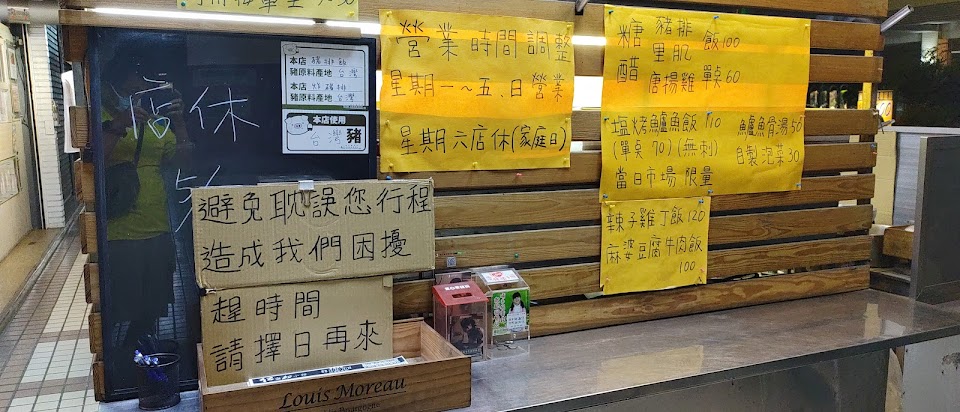 店休
本店 豬排飯
豬原料產地 台灣
本店 炸豬排
豬原料產地 台灣
本店使用
台灣 豬
營業時間調整
星期一~五、日營業
星期六店休(家庭日)
糖 豬排 飯100
醋 里肌
唐揚雞 單点60
塩烤鱸魚飯 110
(單点 70) (無刺)
當日市場 限量
鱸魚骨湯50
自製泡菜30
辣子雞丁飯120
麻婆豆腐牛肉飯
100
避免耽誤您行程
造成我們困擾
趕時間
請擇日再來
Louis Moreau